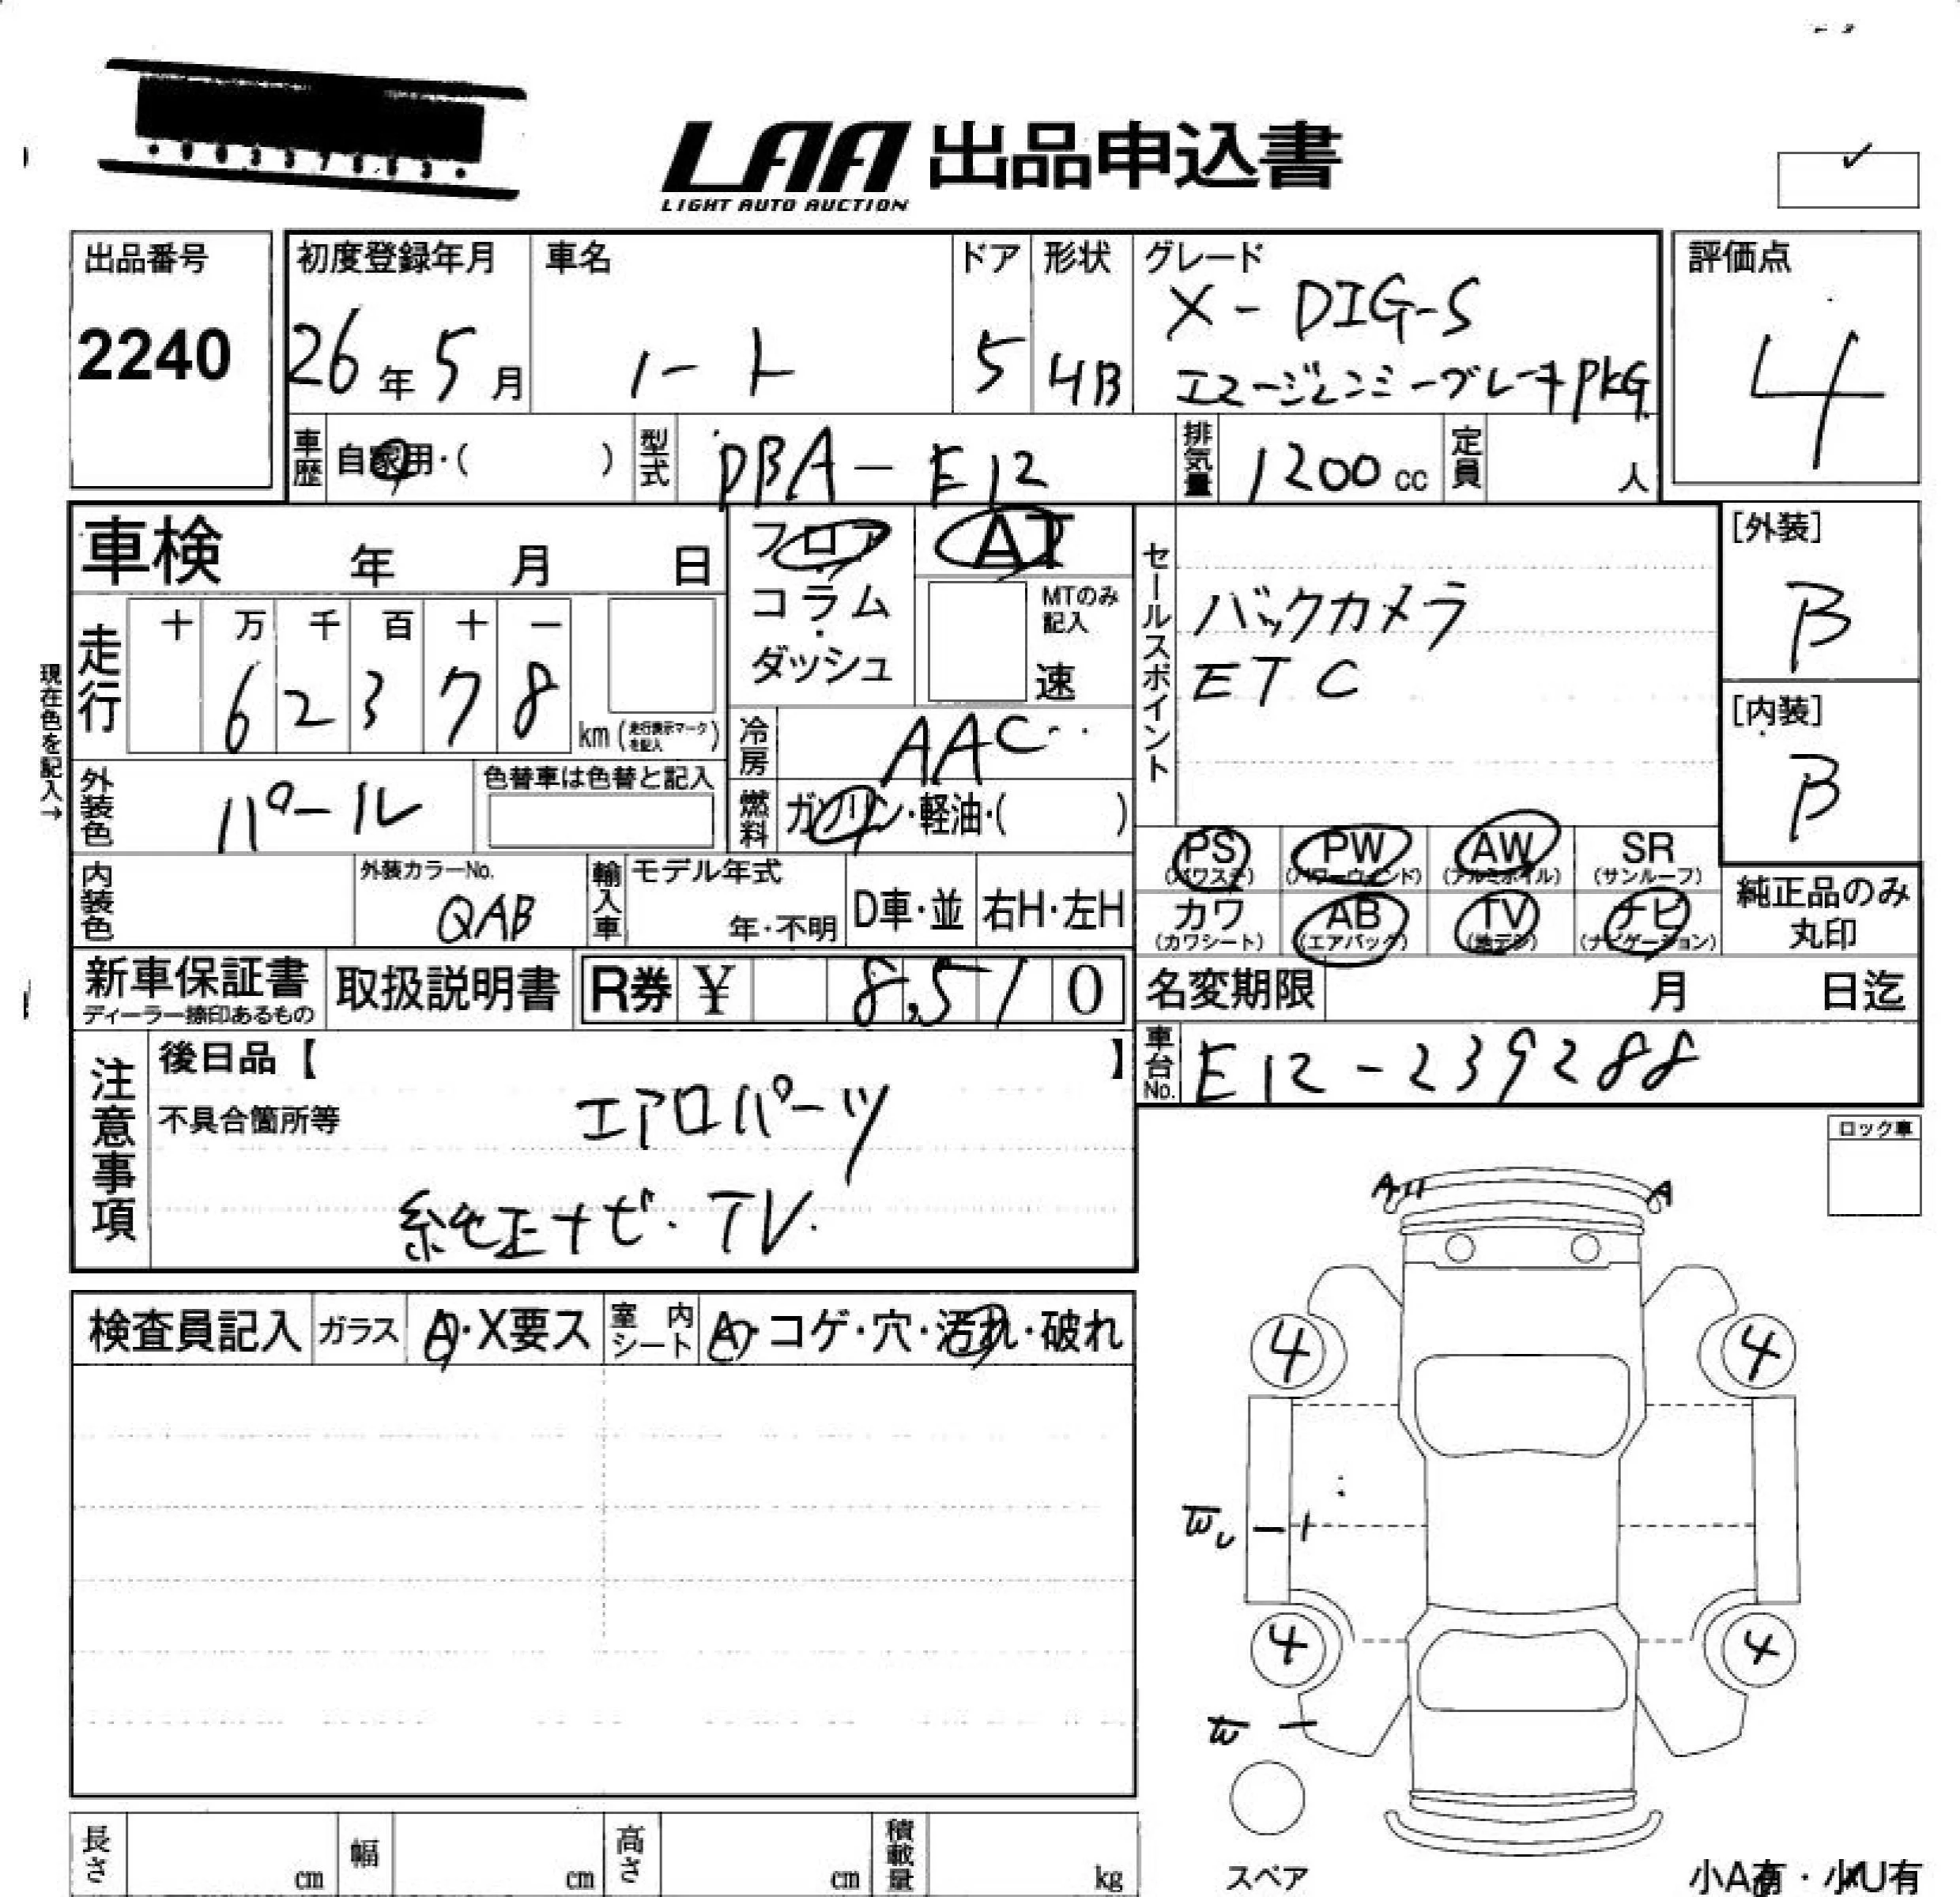 LAA 出品申込書
LIGHT AUTO AUCTION
出品番号
2240
初度登録年月
26年5月
車名
ノート
ドア
5
形状
HB
グレード
X-DIG-S
エマージェンシーブレーキPKG.
評価点
4
車歴
自家用・( )
型式
DBA-E12
排気量
1200cc
定員
人
車検 年 月 日
フロア・コラム・ダッシュ
AT
MTのみ記入
速
走行
十 万 千 百 十 一
6 2 3 7 8
km(走行表示マークを記入)
現在色を記入→
冷房
AAC
燃料
ガソリン・軽油・( )
外装色
パール
色替車は色替と記入
内装色
外装カラーNo.
QAB
輸入車
モデル年式
年・不明
D車・並
右H・左H
セールスポイント
バックカメラ
ETC
[外装]
B
[内装]
B
PS
(パワステ)
PW
(パワーウィンド)
AW
(アルミホイル)
SR
(サンルーフ)
カワ
(カワシート)
AB
(エアバック)
TV
(地デジ)
ナビ
(ナビゲーション)
純正品のみ
丸印
新車保証書
ディーラー捺印あるもの
取扱説明書
R券 ¥ 8,510
名変期限 月 日迄
車台No.
E12-239288
注意事項
後日品【 】
不具合箇所等
エアロパーツ
純正ナビ・TV.
ロック車
検査員記入
ガラス
A・X要ス
室内シート
A・コゲ・穴・汚れ・破れ
A
A
4
4
4
4
長さ cm
幅 cm
高さ cm
積載量 kg
スペア
小A有・小U有